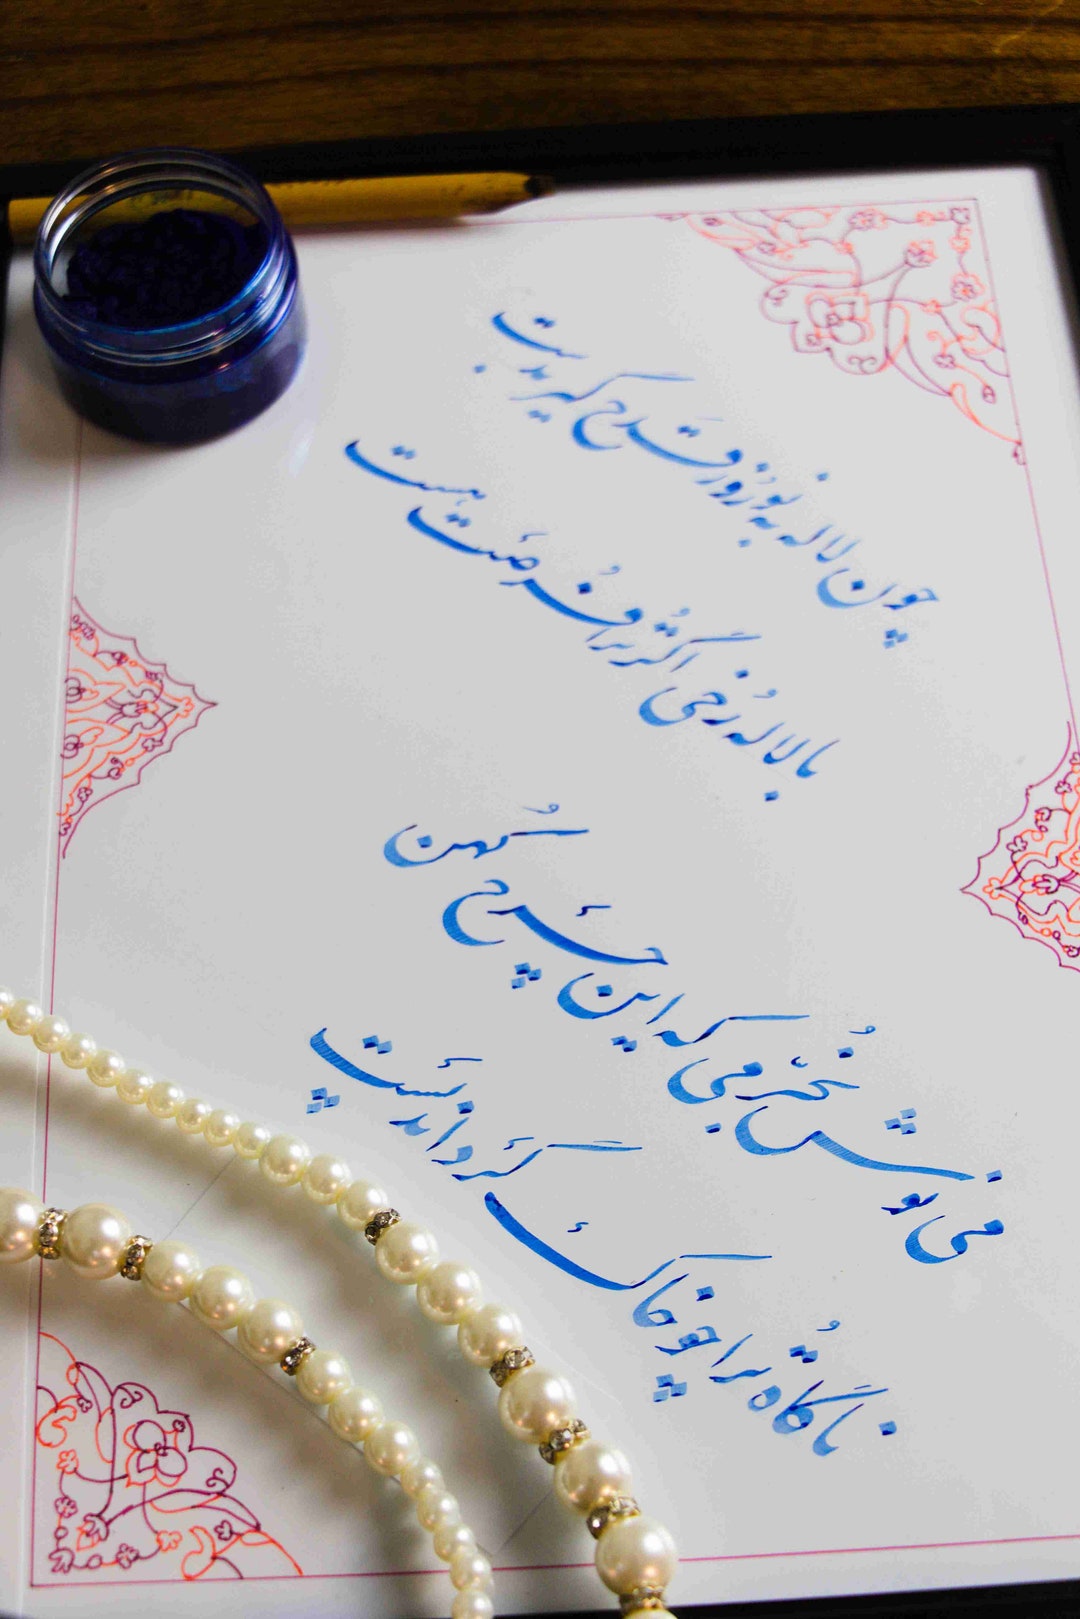 چون لاله به نوروز قدح گیر بدست
با لاله رُخی اگر تُرا فُرصت هست
می نوش بخُرّمی که این چرخ کُهن
ناگاه تُرا چو خاک گرداند پست